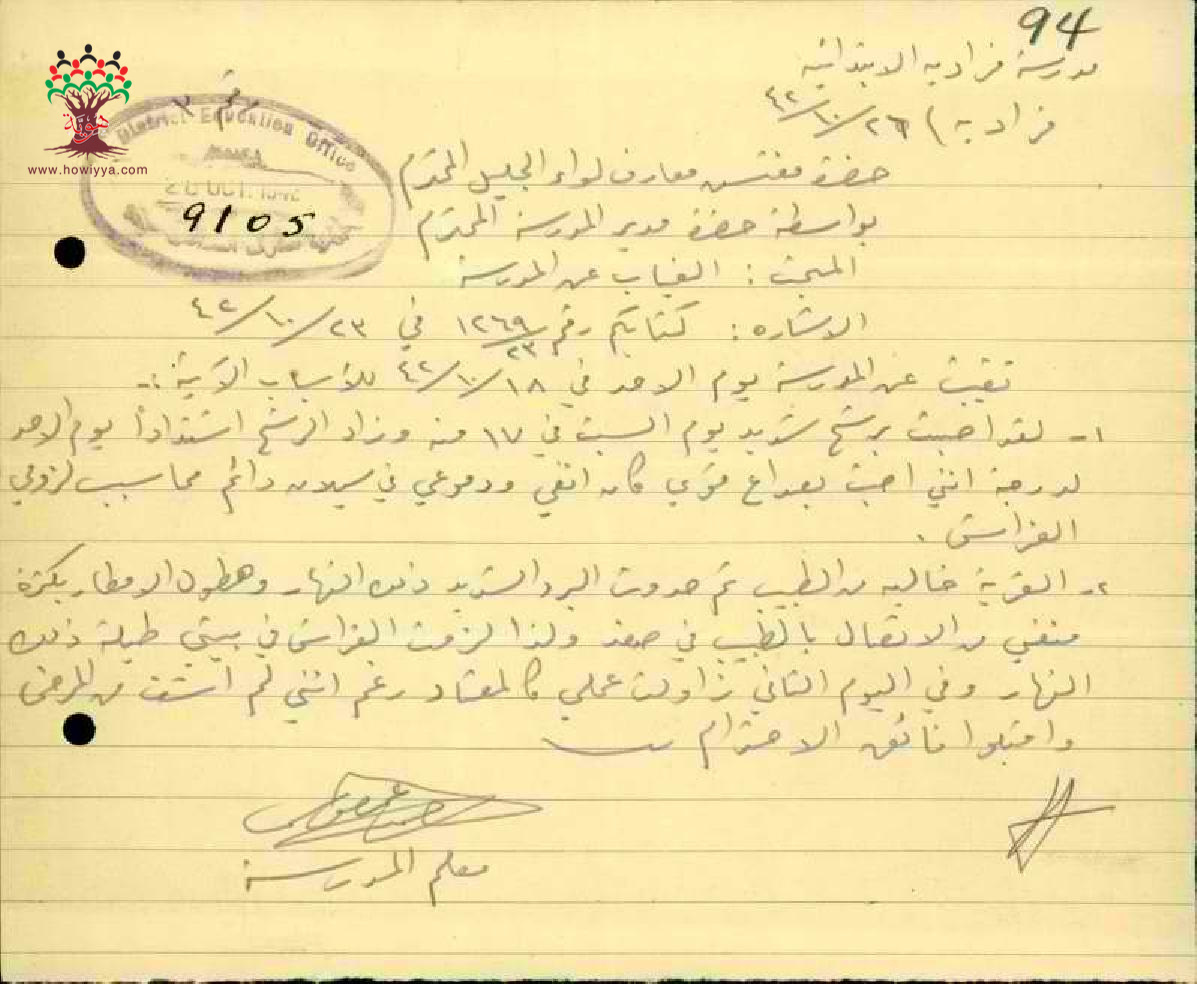 94
مدرسة فراديه الابتدائية
رقم ٣
فرادية) ٢٦/١٠/٤٢
هوية
www.howiyya.com
District Education Office
9105
حضرة مفتش معارف لواء الجليل المحترم
بواسطة حضرة مدير المدرسة المحترم
المبحث : الغياب عن المدرسة
الاشاره : كتابكم رقم ١٢٦٩/٢٣ في ٢٣/١٠/٤٢
تغيبت عن المدرسة يوم الاحد في ١٨/١٠/٤٢ للأسباب الآتية :-
١- لقد اصبت برشح شديد يوم السبت في ١٧ منه وزاد الرشح اشتداداً يوم الاحد
لدرجة انني اصبت بصداع قوي كان انفي ودموعي في سيلان دائم مما سبب لزومي
الفراش .
٢- القرية خاليه من الطبيب ثم حدوث البرد الشديد ذلك النهار وهطول الامطار بكثرة
منعني من الاتصال بالطبيب في صفد ولذا لزمت الفراش في بيتي طيلة ذلك
النهار وفي اليوم الثاني زاولت عملي كالمعتاد رغم انني لم اشف من المرض
واقبلوا فائق الاحترام
معلم المدرسة